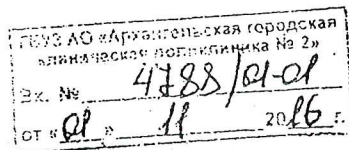 ГБУЗ АО «Архангельская городская
клиническая поликлиника № 2»
Вх. № 4788/01-01
от «01» 11 2016 г.